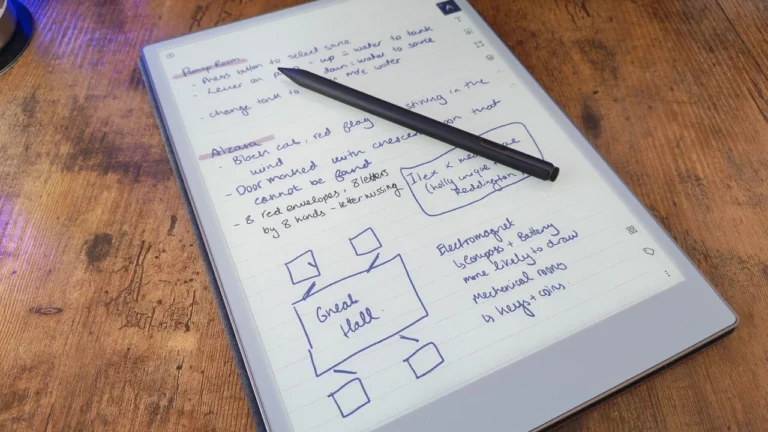 Pump Room
- Press button to select same
- Lever on - up = water to tank
down = water to source
- Change tank to more water
Alzara
Black cat, red flag stirring in the
wind
- Door marked with crescent moon that
cannot be found
- 8 red envelopes, 8 letters
by 8 hands - letter missing
Ilex x me
(holly unique
Reddington
Great
Hall.
Electromagnet
↳ Compass + Battery
more likely to draw
Mechanical
↳ Keys + coins.
A
T